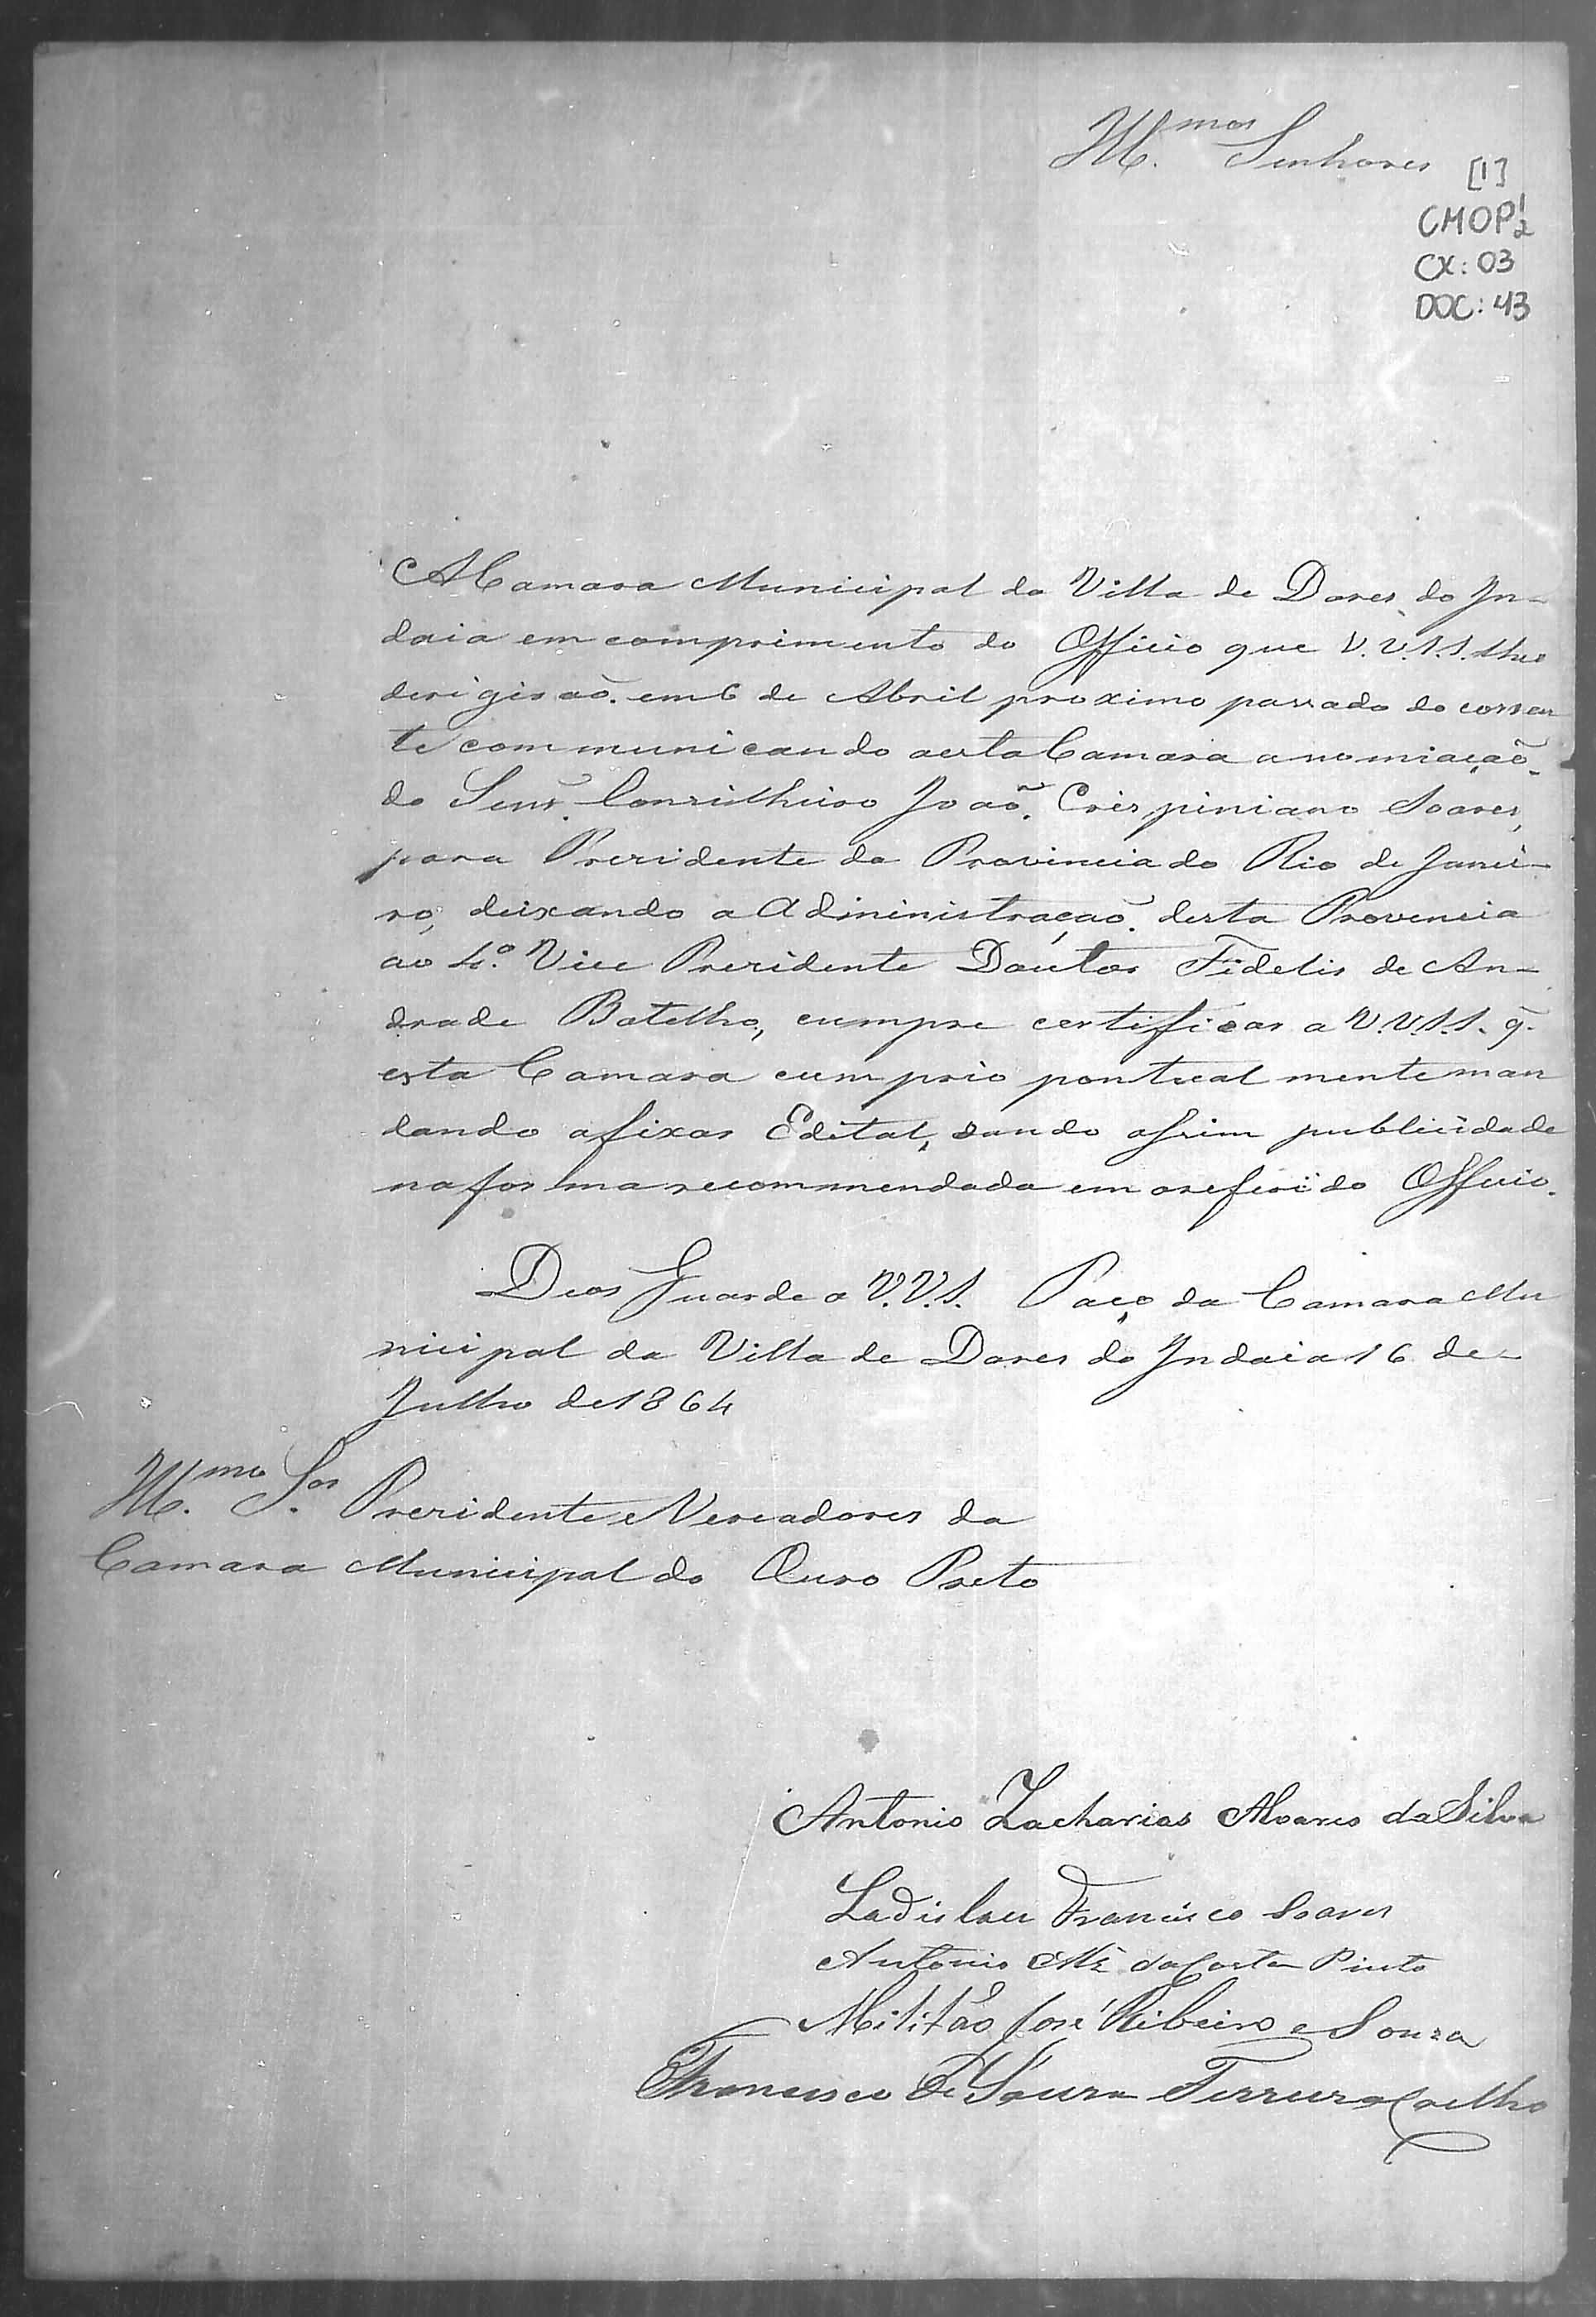 Ill.mos Senhores
[1]
CMOP 1/2
CX: 03
DOC: 43
A Camara Municipal da Villa de Dores do In-
daia em comprimento do Officio que V.V.S.S. lhe
derigirão em 6 de Abril proximo passado do corren
te communicando a esta Camara a nomiação
do Senr. Conselheiro João Crispiniano Soares,
para Presidente da Provincia do Rio de Janei-
ro, deixando a Administração desta Provencia
ao 4.º Vice Presidente Doutor Fidelis de An-
drade Botelho, cumpre certificar a V.V.S.S. q̃.
esta Camara cumprio pontualmente man
dando afixar Edital, dando assim publicidade
na forma recommendada em o referido Officio.
Deos Guarde a V.V.S. Paço da Camara Mu
nicipal da Villa de Dores do Indaia 16 de
Julho de 1864
Ill.mo S.or Presidente e Vereadores da
Camara Municipal do Ouro Preto
Antonio Zacharias Alvares da Silva
Ladislau Francisco Soares
Antonio Me. da Costa Pinto
Militão José Ribeiro e Souza
Francisco de Souza Ferreira Coelho